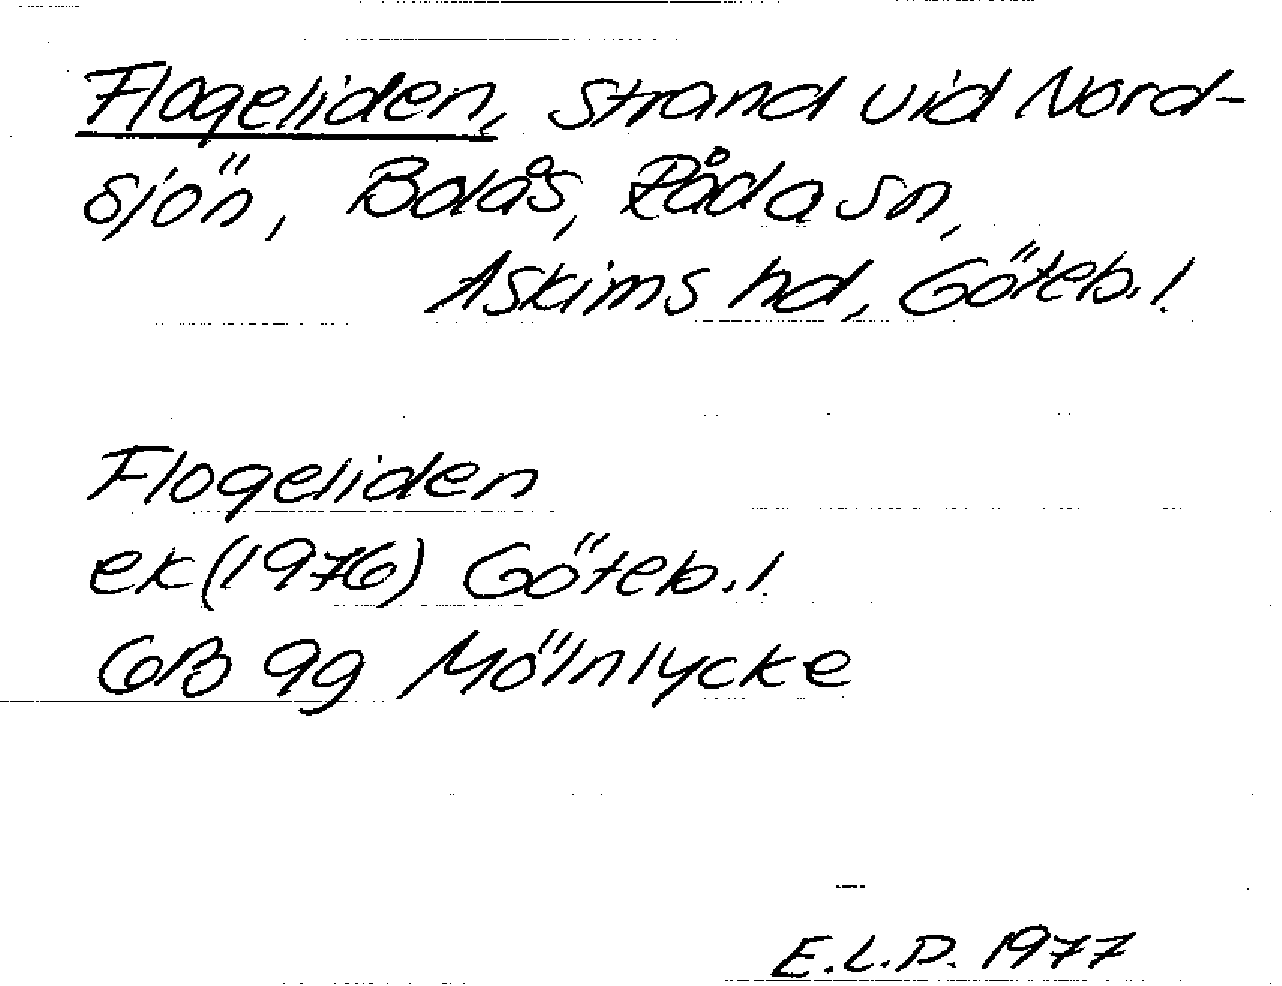 Flogeliden, strand vid Nord-
sjön, Bolås, Råda sn,
Askims hd, Göteb. l.
Flogeliden
ek (1976) Göteb. l.
GB 9g Mölnlycke
E.L.D. 1977